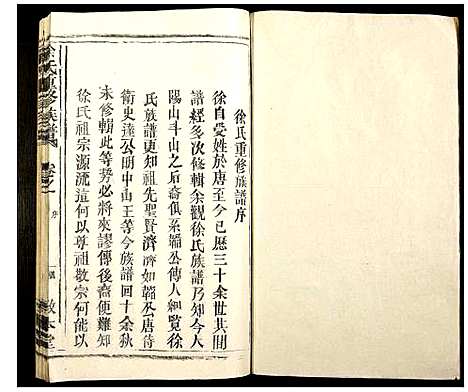 徐氏重修族譜序
徐自受姓於唐至今已歷三十余世其間
譜經多次修輯余觀徐氏族譜乃知今人
陽山斗山之后裔俱系韜公傳人細覧徐
氏族譜更知祖先聖賢濟濟如韜公唐待
衛史達公明中山王等今族譜回十余秋
未修輯此等势必將來謬傳後裔便難知
徐氏祖宗源流這何以尊祖敬宗何能以
徐氏重修族譜 卷之一 序 一 敦本堂